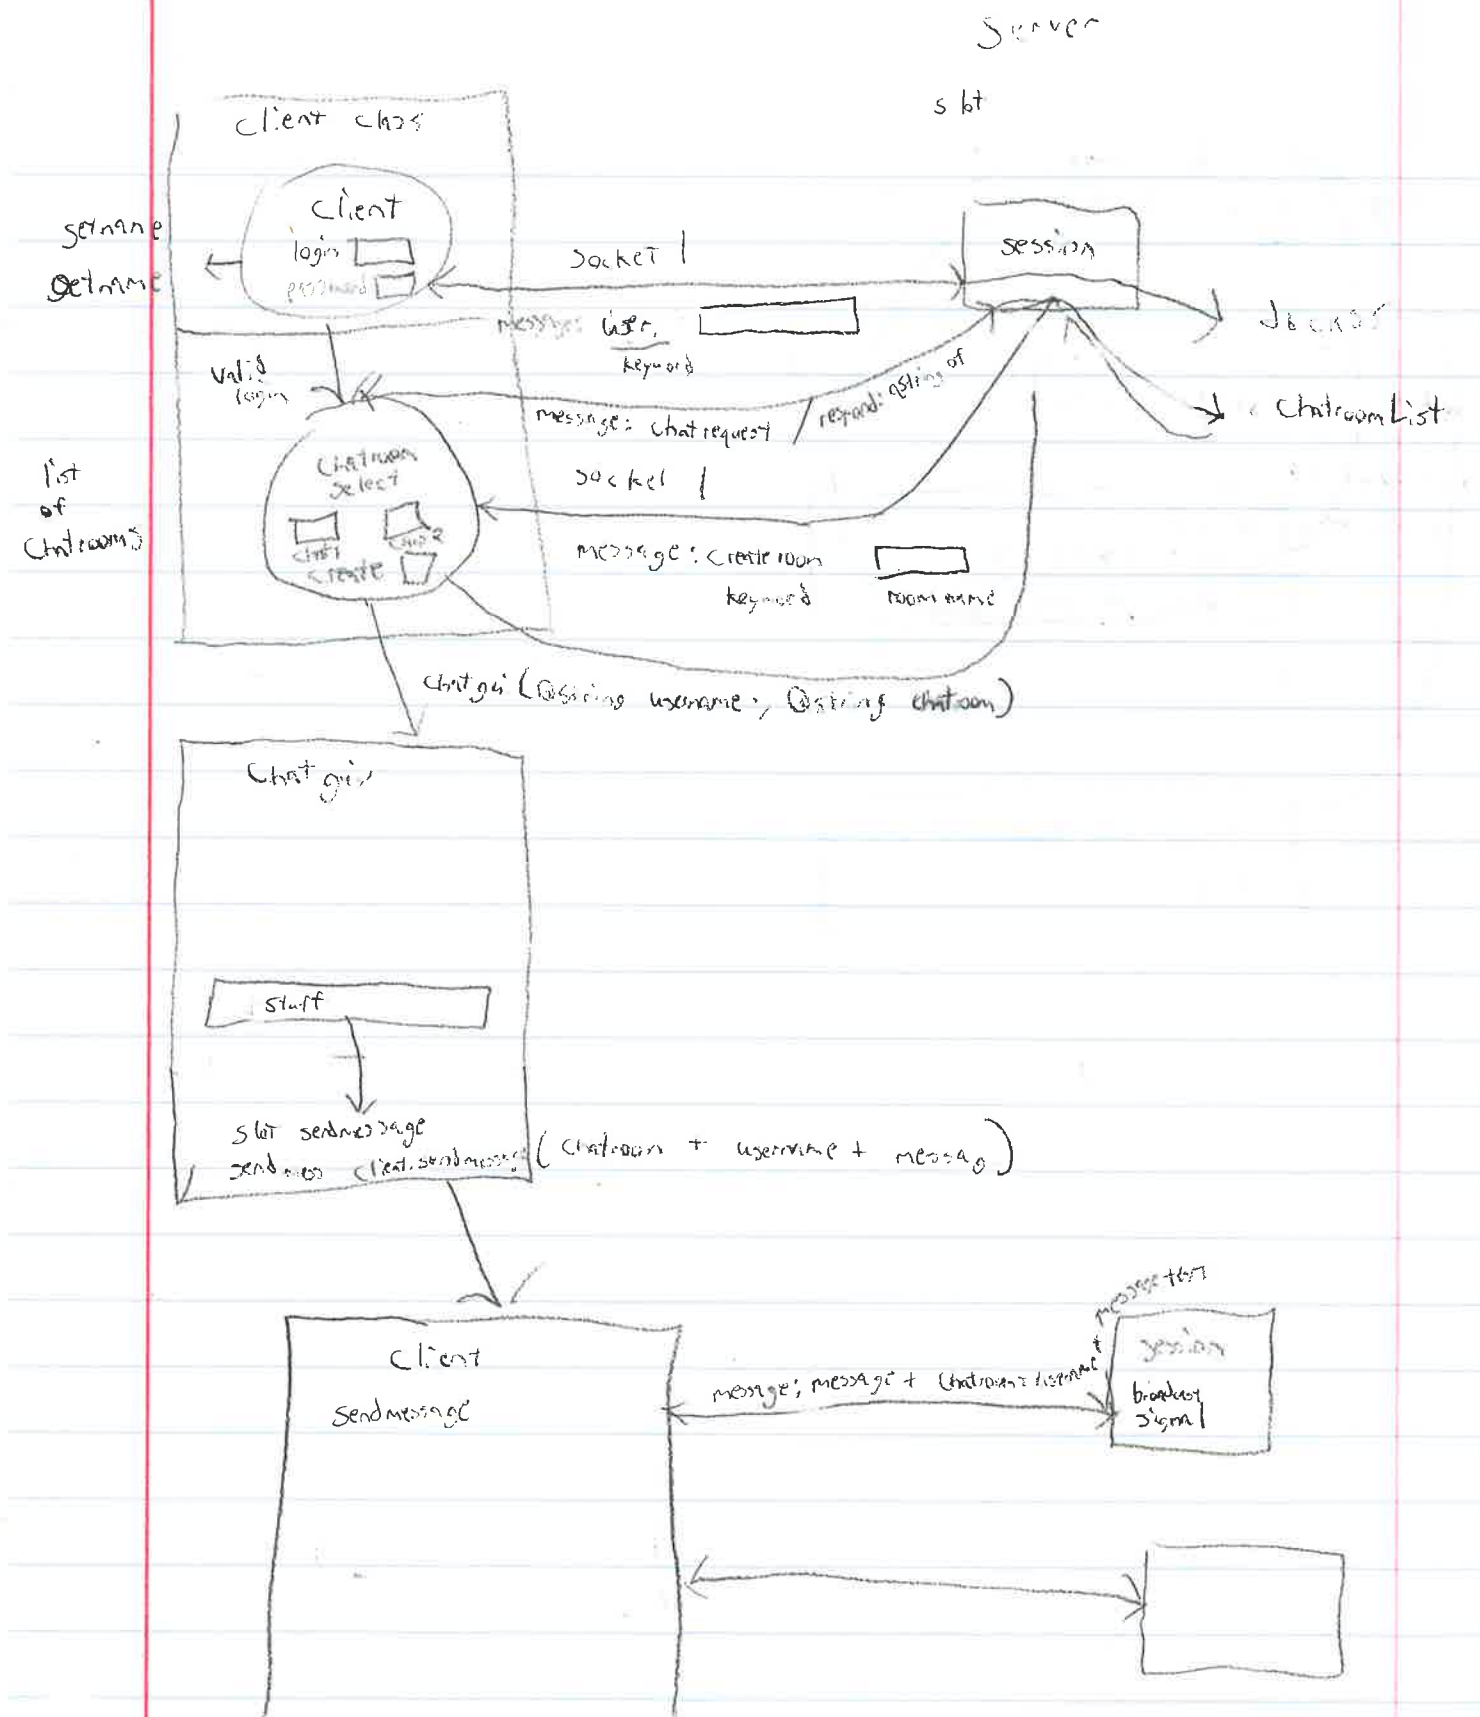 Server
slot
client class
client
login
password
setname
getname
socket 1
session
message: user,
keyword
valid
login
message: chatrequest / respond: qstring of
ChatroomList
list
of
Chatrooms
Chatroom
select
chat1
chat2
create
socket 1
message: create room
keyword
room name
chatgui (Qstring username, Qstring chatroom)
Chatgui
stuff
slot sendmessage
sendmess client.sendmessage (chatroom + username + messag)
Client
sendmessage
message: message + chatroom + username + message text
session
broadcast
signal